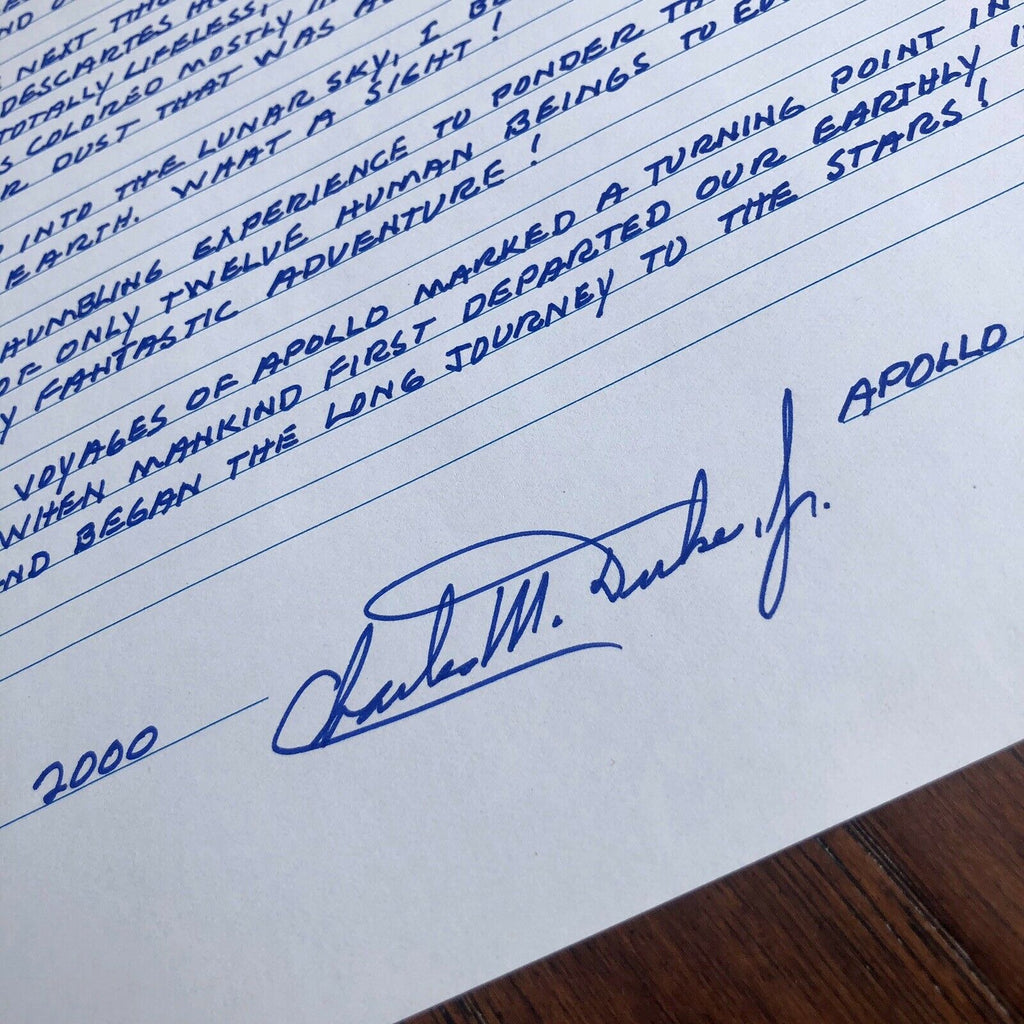 NEXT
DESCARTES
TOTALLY LIFELESS,
COLORED MOSTLY
DUST THAT WAS
INTO THE LUNAR SKY, I
EARTH. WHAT A SIGHT!
HUMBLING EXPERIENCE TO PONDER
OF ONLY TWELVE HUMAN BEINGS TO
FANTASTIC ADVENTURE!
VOYAGES OF APOLLO MARKED A TURNING POINT IN
WHEN MANKIND FIRST DEPARTED OUR EARTHLY
BEGAN THE LONG JOURNEY TO THE STARS!
APOLLO
Charles M. Duke, Jr.
2000